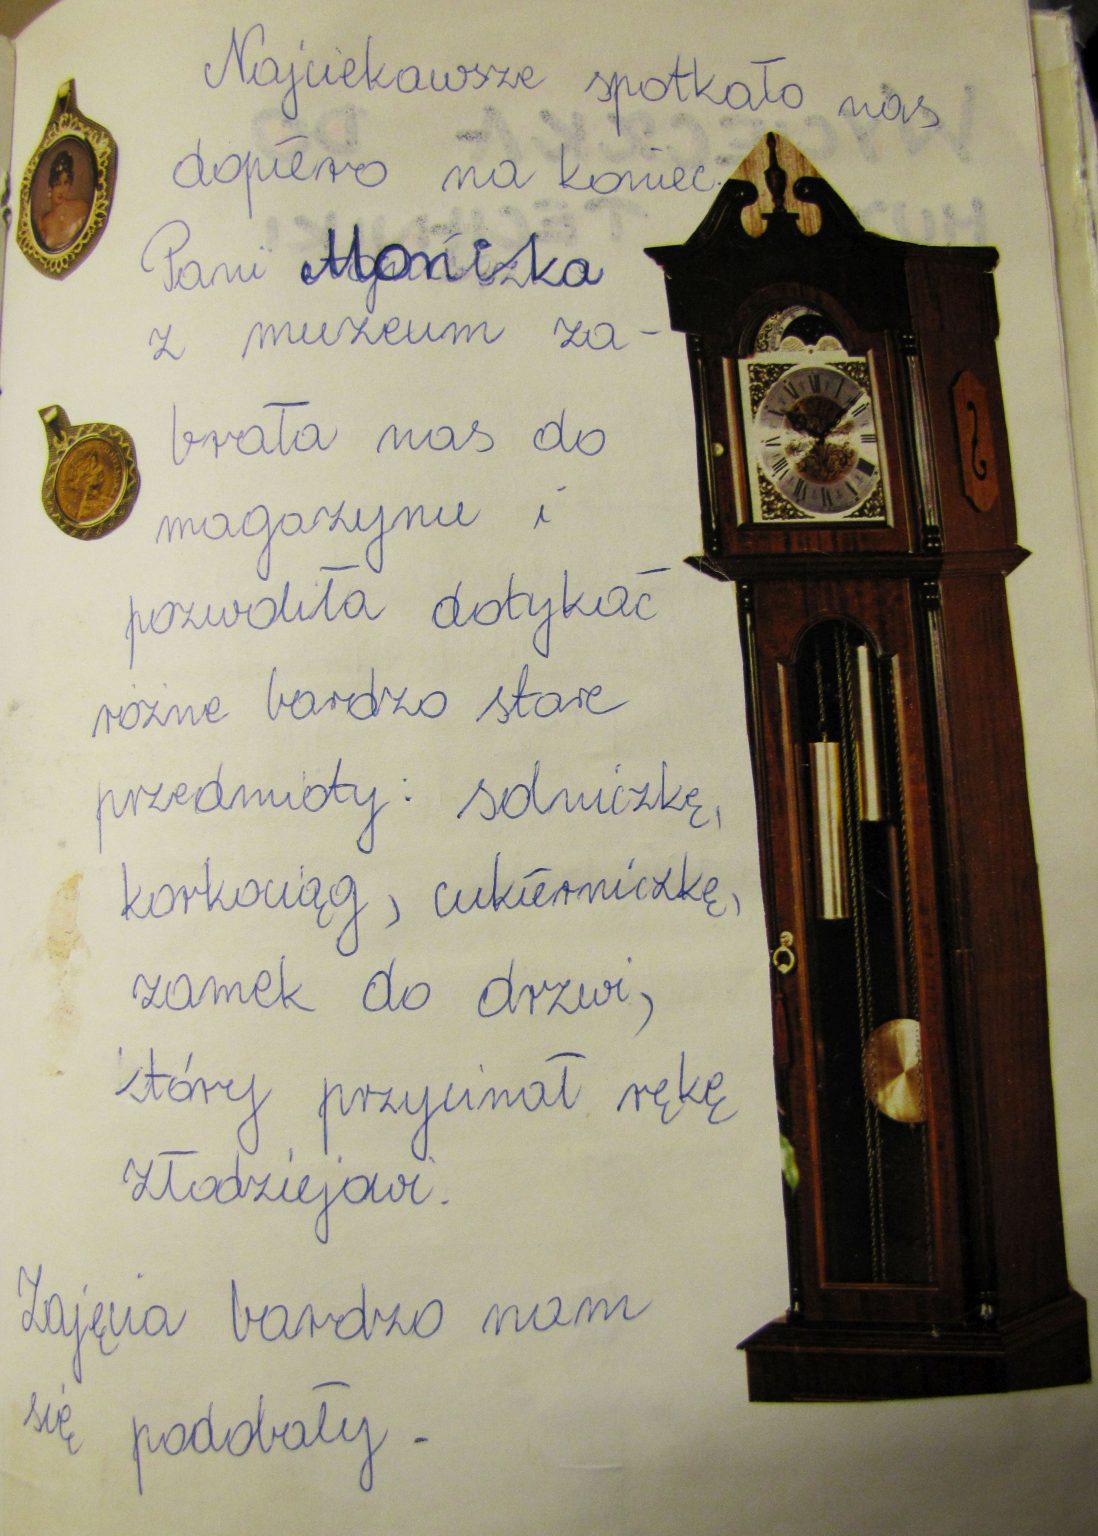 Najciekawsze spotkało nas
dopiero na koniec.
Pani Monika
z muzeum za-
brała nas do
magazynu i
pozwoliła dotykać
różne bardzo stare
przedmioty: solniczkę,
korkociąg, cukierniczkę,
zamek do drzwi,
który przycinał rękę
złodziejowi.
Zajęcia bardzo nam
się podobały.